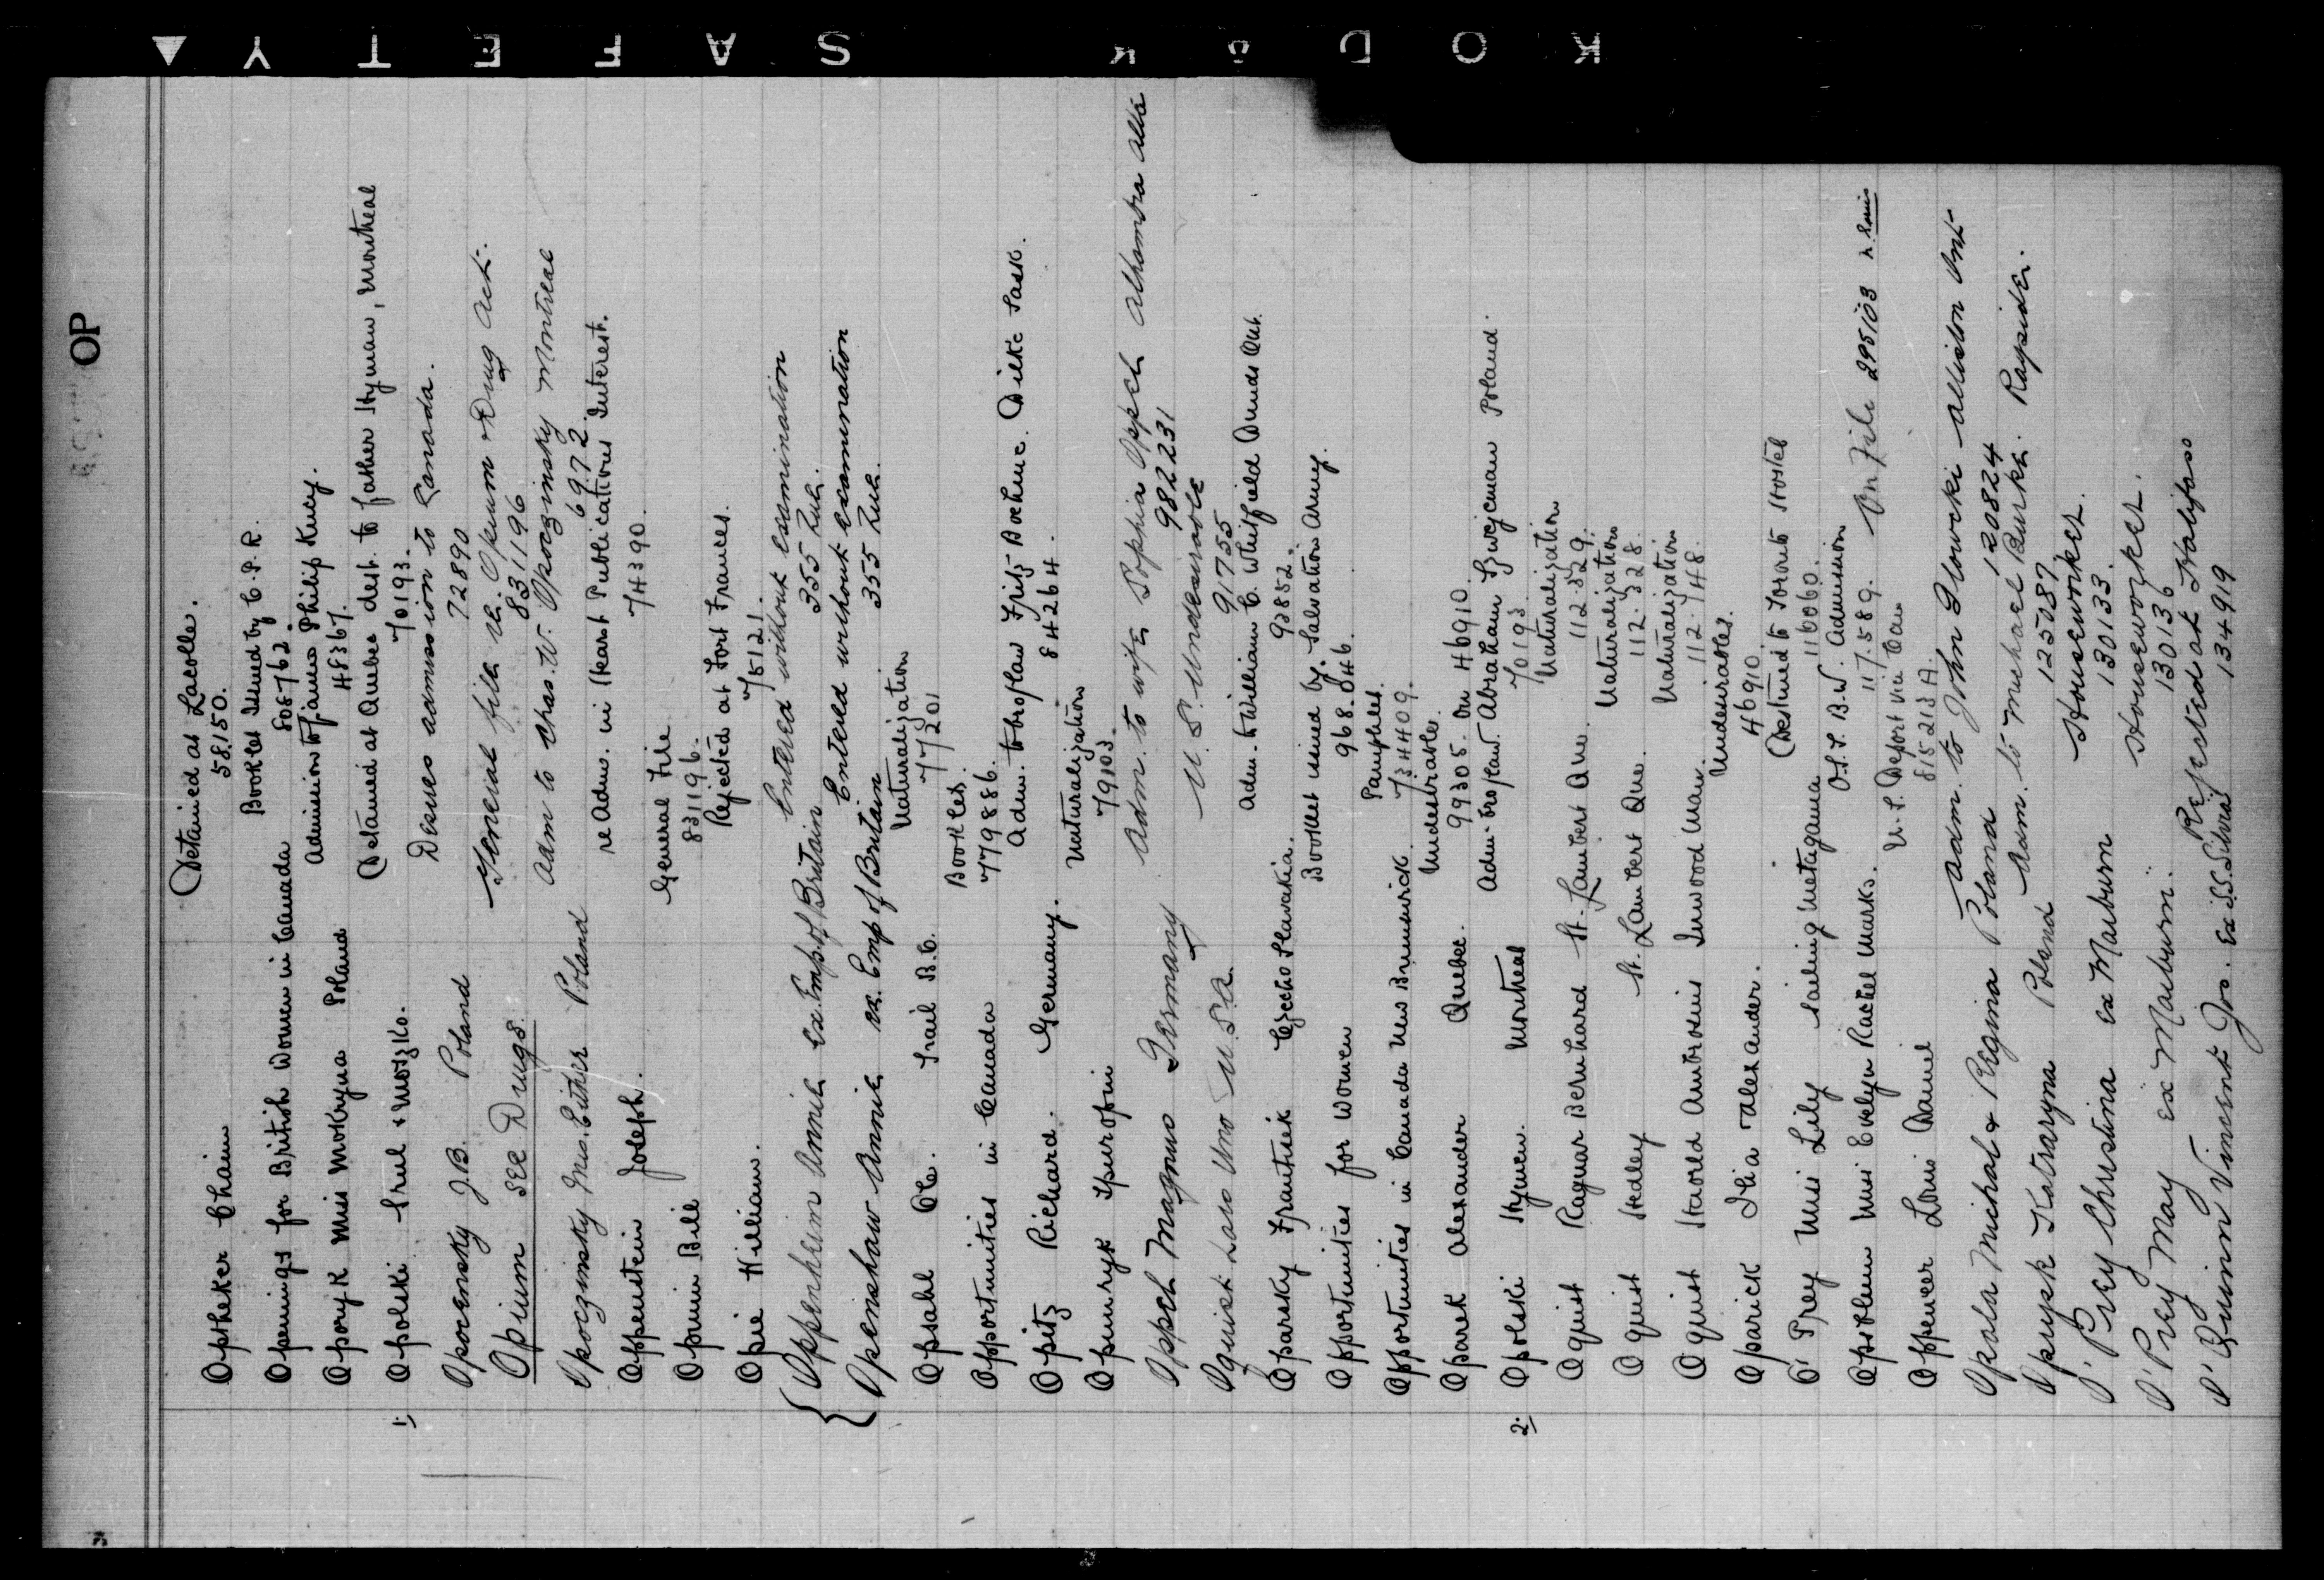 KODAK SAFETY
OP
Optheker Chaim Detained at Lacolle.
58150.
Openings for British Women in Canada Booklet Issued by C.P.R.
808762.
Oporyk Miss Mokryna Poland Admission of James Philip Kucy.
48367.
1. Opolski Srul & Moszko. Detained at Quebec dest. to father Hyman, Montreal
70193.
Opocensky J.B. Poland Desires admission to Canada.
72890
Opium see Drugs. General file re. Opium & Drug Act.
831196
Opoczinsky Mrs. Esther Poland Adm to Chas. W. Opoczinsky Montreal
69972.
Oppenstein Joseph. re Adm. in Skarst Publications Interest.
74390.
Opium Bill General File
83196.
Opie William. Rejected at Fort Frances.
75121.
Oppenheim Annie ex. Emp. of Britain Entered without examination
355 Zuh.
Openshaw Annie ex. Emp of Britain Entered without examination
355 Zuh.
Opsahl Ole. Trail B.C. Naturalization
77201
Opportunities in Canada Booklet.
779886.
Opitz Richard. Germany. Adm. to Broslaw Fritz Boehme. Dilke Sask.
84264.
Opunryk Spuropin Naturalization
79103.
Oppel Magnus Germany Adm. to wife Sophia Oppel Alhambra Alta
982231
Oquist Lars Uno U.S.A. U.S. Undesirable
91755
Oparsky Frantisek Czecho Slovakia. Adm. to William C. Whitfield Dundas Ont.
93852.
Opportunities for Women Booklet issued by Salvation Army.
968.046.
Opportunities in Canada New Brunswick. Pamphlet.
734409.
Oparek Alexander Quebec. Undesirable.
99305. On 46910.
2. Opolski Hymen. Montreal Adm. Bro. Law. Abraham Szwejcman Poland.
70193.
Oquist Ragnar Bernhard St. Lambert Que. Naturalization
112.329.
Oquist Hedley St. Lambert Que. Naturalization
112.328.
Oquist Harold Ambrosius Inwood Man. Naturalization
112.748.
Oparick Ilia Alexander. Undesirables.
46910.
O'Prey Miss Lily Sailing Metagama Destined to Toronto Hostel
116060.
Opsoblem Miss Evelyn Rachel Marks. O.S.S. B.W. Admission
117.589. On File 295103 R. Louis
Oppencer Louis Daniel U.S. Deport via Can
815213 A.
Opala Michal & Regina Poland Adm. to John Glowcki Alliston Ont
120824
Oprysk Katraryna Poland Adm. to Michael Burke. Rayside.
125087
O'Prey Christina ex Marburn Houseworker.
130133.
O'Prey May ex Marburn. Houseworker.
130136
O'Quinn Vincent Jos. Ex S.S. Silvia Rejected at Halifax
134919